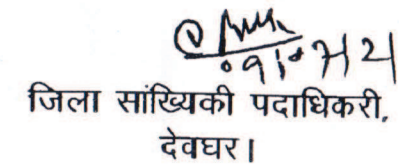 जिला सांख्यिकी पदाधिकरी,
देवघर।